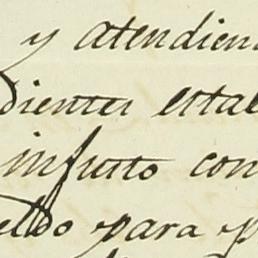 y atendien
dientes estal
infusto con
eldo para p